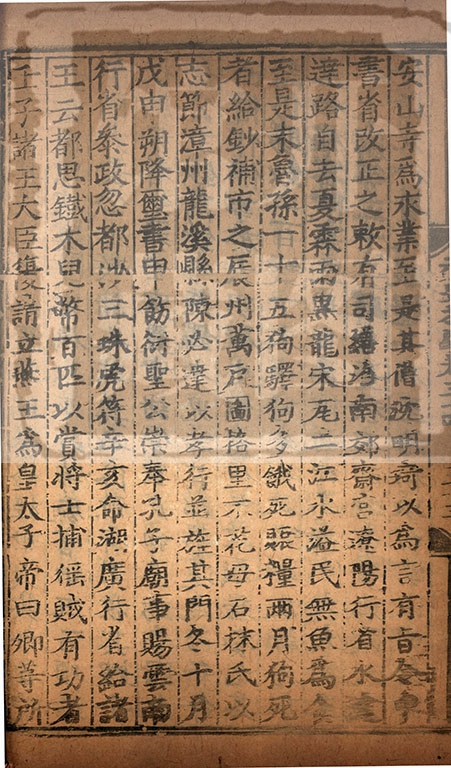 安山寺爲永業至是其僧沉明奇以爲言有旨令中
書省改正之敕有司繕治南郊齋宮遼陽行省水達
達路自去夏霖雨黑龍宋瓦二江水溢民無魚爲食
至是末魯孫一十五狗驛狗多餓死賑糧兩月狗死
者給鈔補市之辰州萬戶圖格里不花母石抹氏以
志節漳州龍溪縣陳必達以孝行並旌其門冬十月
戊申朔降璽書申飭衍聖公崇奉孔子廟事賜雲南
行省參政忽都沙三珠虎符辛亥命湖廣行省給諸
王云都思鐵木兒幣百匹以賞將士捕猺賊有功者
壬子諸王大臣復請立燕王爲皇太子帝曰卿等所